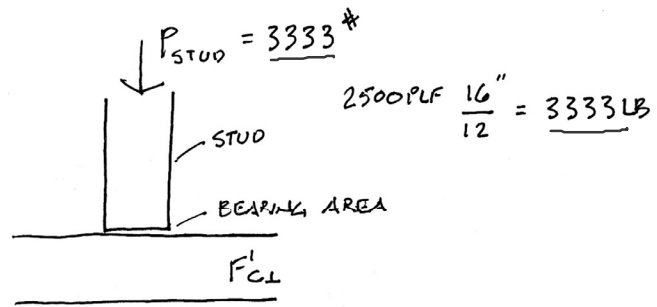 P_STUD = 3333#
2500 PLF 16"/12 = 3333 LB
STUD
BEARING AREA
F'c⊥